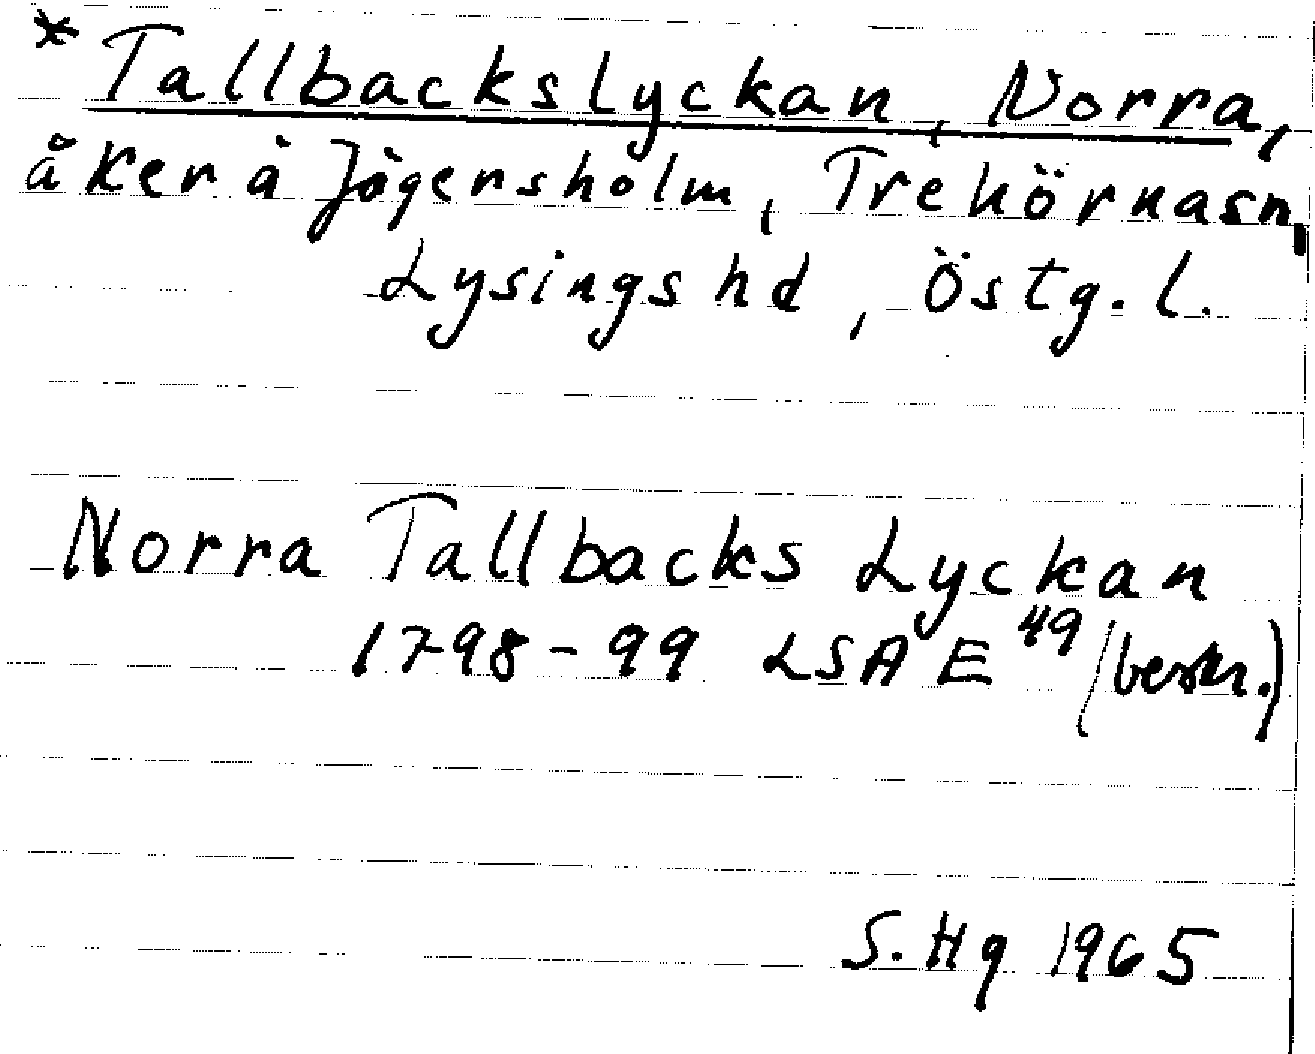 *Tallbackslyckan, Norra,
åker å Jägersholm, Trehörnasn,
Lysings hd, Östg. l.
Norra Tallbacks Lyckan
1798-99 LSA E 49 (beskr.)
S. Hg 1965